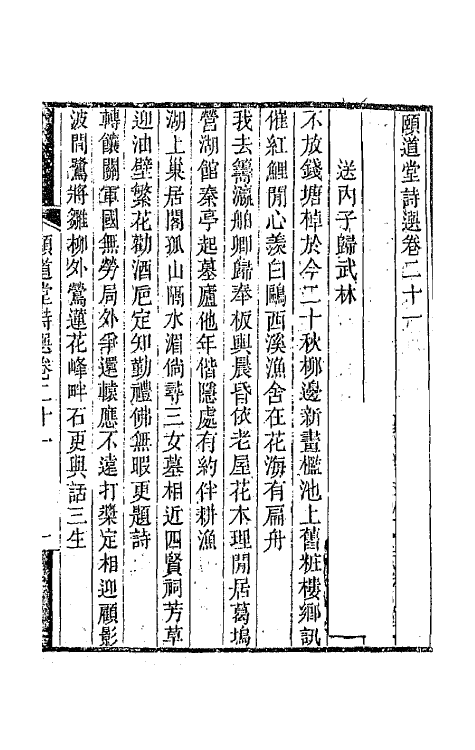 頤道堂詩選卷二十一
送內子歸武林
不放錢塘棹於今二十秋柳邊新畫檻池上舊粧樓鄉訊
催紅鯉閒心羨白鷗西溪漁舍在花海有扁舟
我去籌瀛舶卿歸奉板輿晨昏依老屋花木理閒居葛塢
營湖館秦亭起墓廬他年偕隱處有約伴耕漁
湖上巢居閣孤山隔水湄倘尋三女墓相近四賢祠芳草
迎油壁繁花勒酒卮定知勤禮佛無暇更題詩
轉饟關軍國無勞局外爭還轅應不遠打槳定相迎顧影
波間鷺將雛柳外鶯蓮花峰畔石更與話三生
頤道堂詩選卷二十一
一